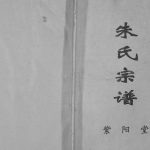 朱氏宗谱
紫阳堂